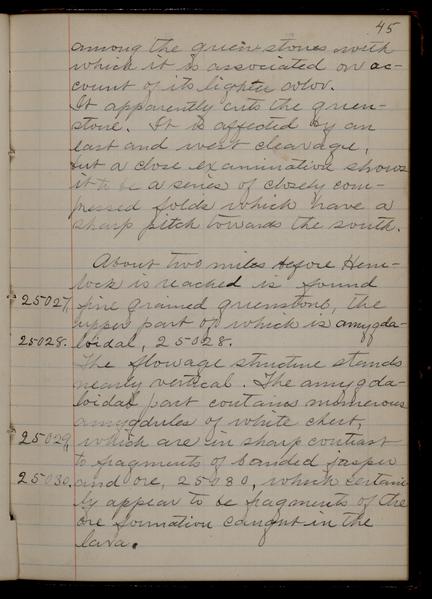 45
among the green stones with
which it is associated on ac-
count of its lighter color.
It apparently cuts the green-
stone. It is affected by an
east and west cleavage,
but a close examination shows
it to be a series of closely com-
pressed folds which have a
sharp pitch towards the south.
About two miles before Hem-
lock is reached is found
25027, fine grained greenstone, the
upper part of which is amygda-
25028. loidal, 25028.
The flowage structure stands
nearly vertical. The amygda-
loidal part contains numerous
amygdules of white chert,
25029, which are in sharp contrast
to fragments of banded jasper
25030. and ore, 25030, which certain-
ly appear to be fragments of the
ore formation caught in the
lava.